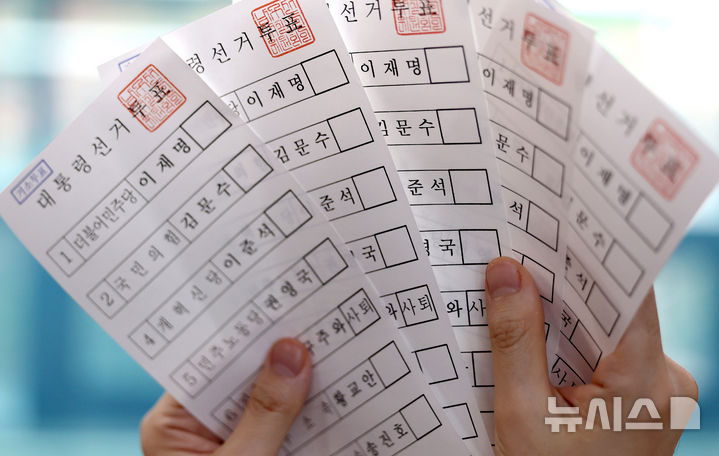 대통령선거투표
거소투표
1 더불어민주당 이재명
2 국민의힘 김문수
4 개혁신당 이준석
5 민주노동당 권영국
6 주와 사퇴
소속 황교안
송진호
령선거투표
당 이재명
김문수
준석
국
와 사퇴
이재명
김문수
준석
영국
와 사퇴
선거투표
이재명
문수
준석
선거투표
재명
문수
준석
영국
사퇴
뉴시스